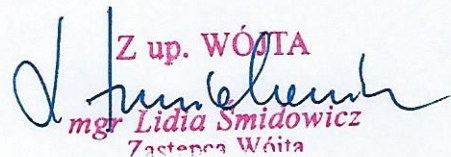 Z up. WÓJTA
mgr Lidia Śmidowicz
Zastępca Wójta